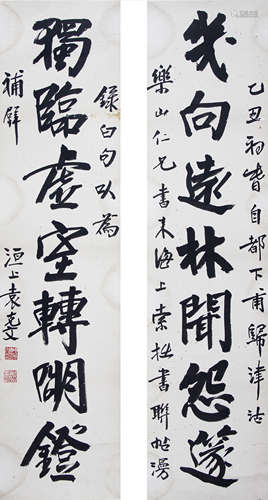 乙丑初春自都下甫歸津沽
幾向遠林聞怨篴
樂山仁兄書來海上索拙書聯帖漫
錄白句以為
獨臨虛室轉明鐙
補壁
洹上袁克文